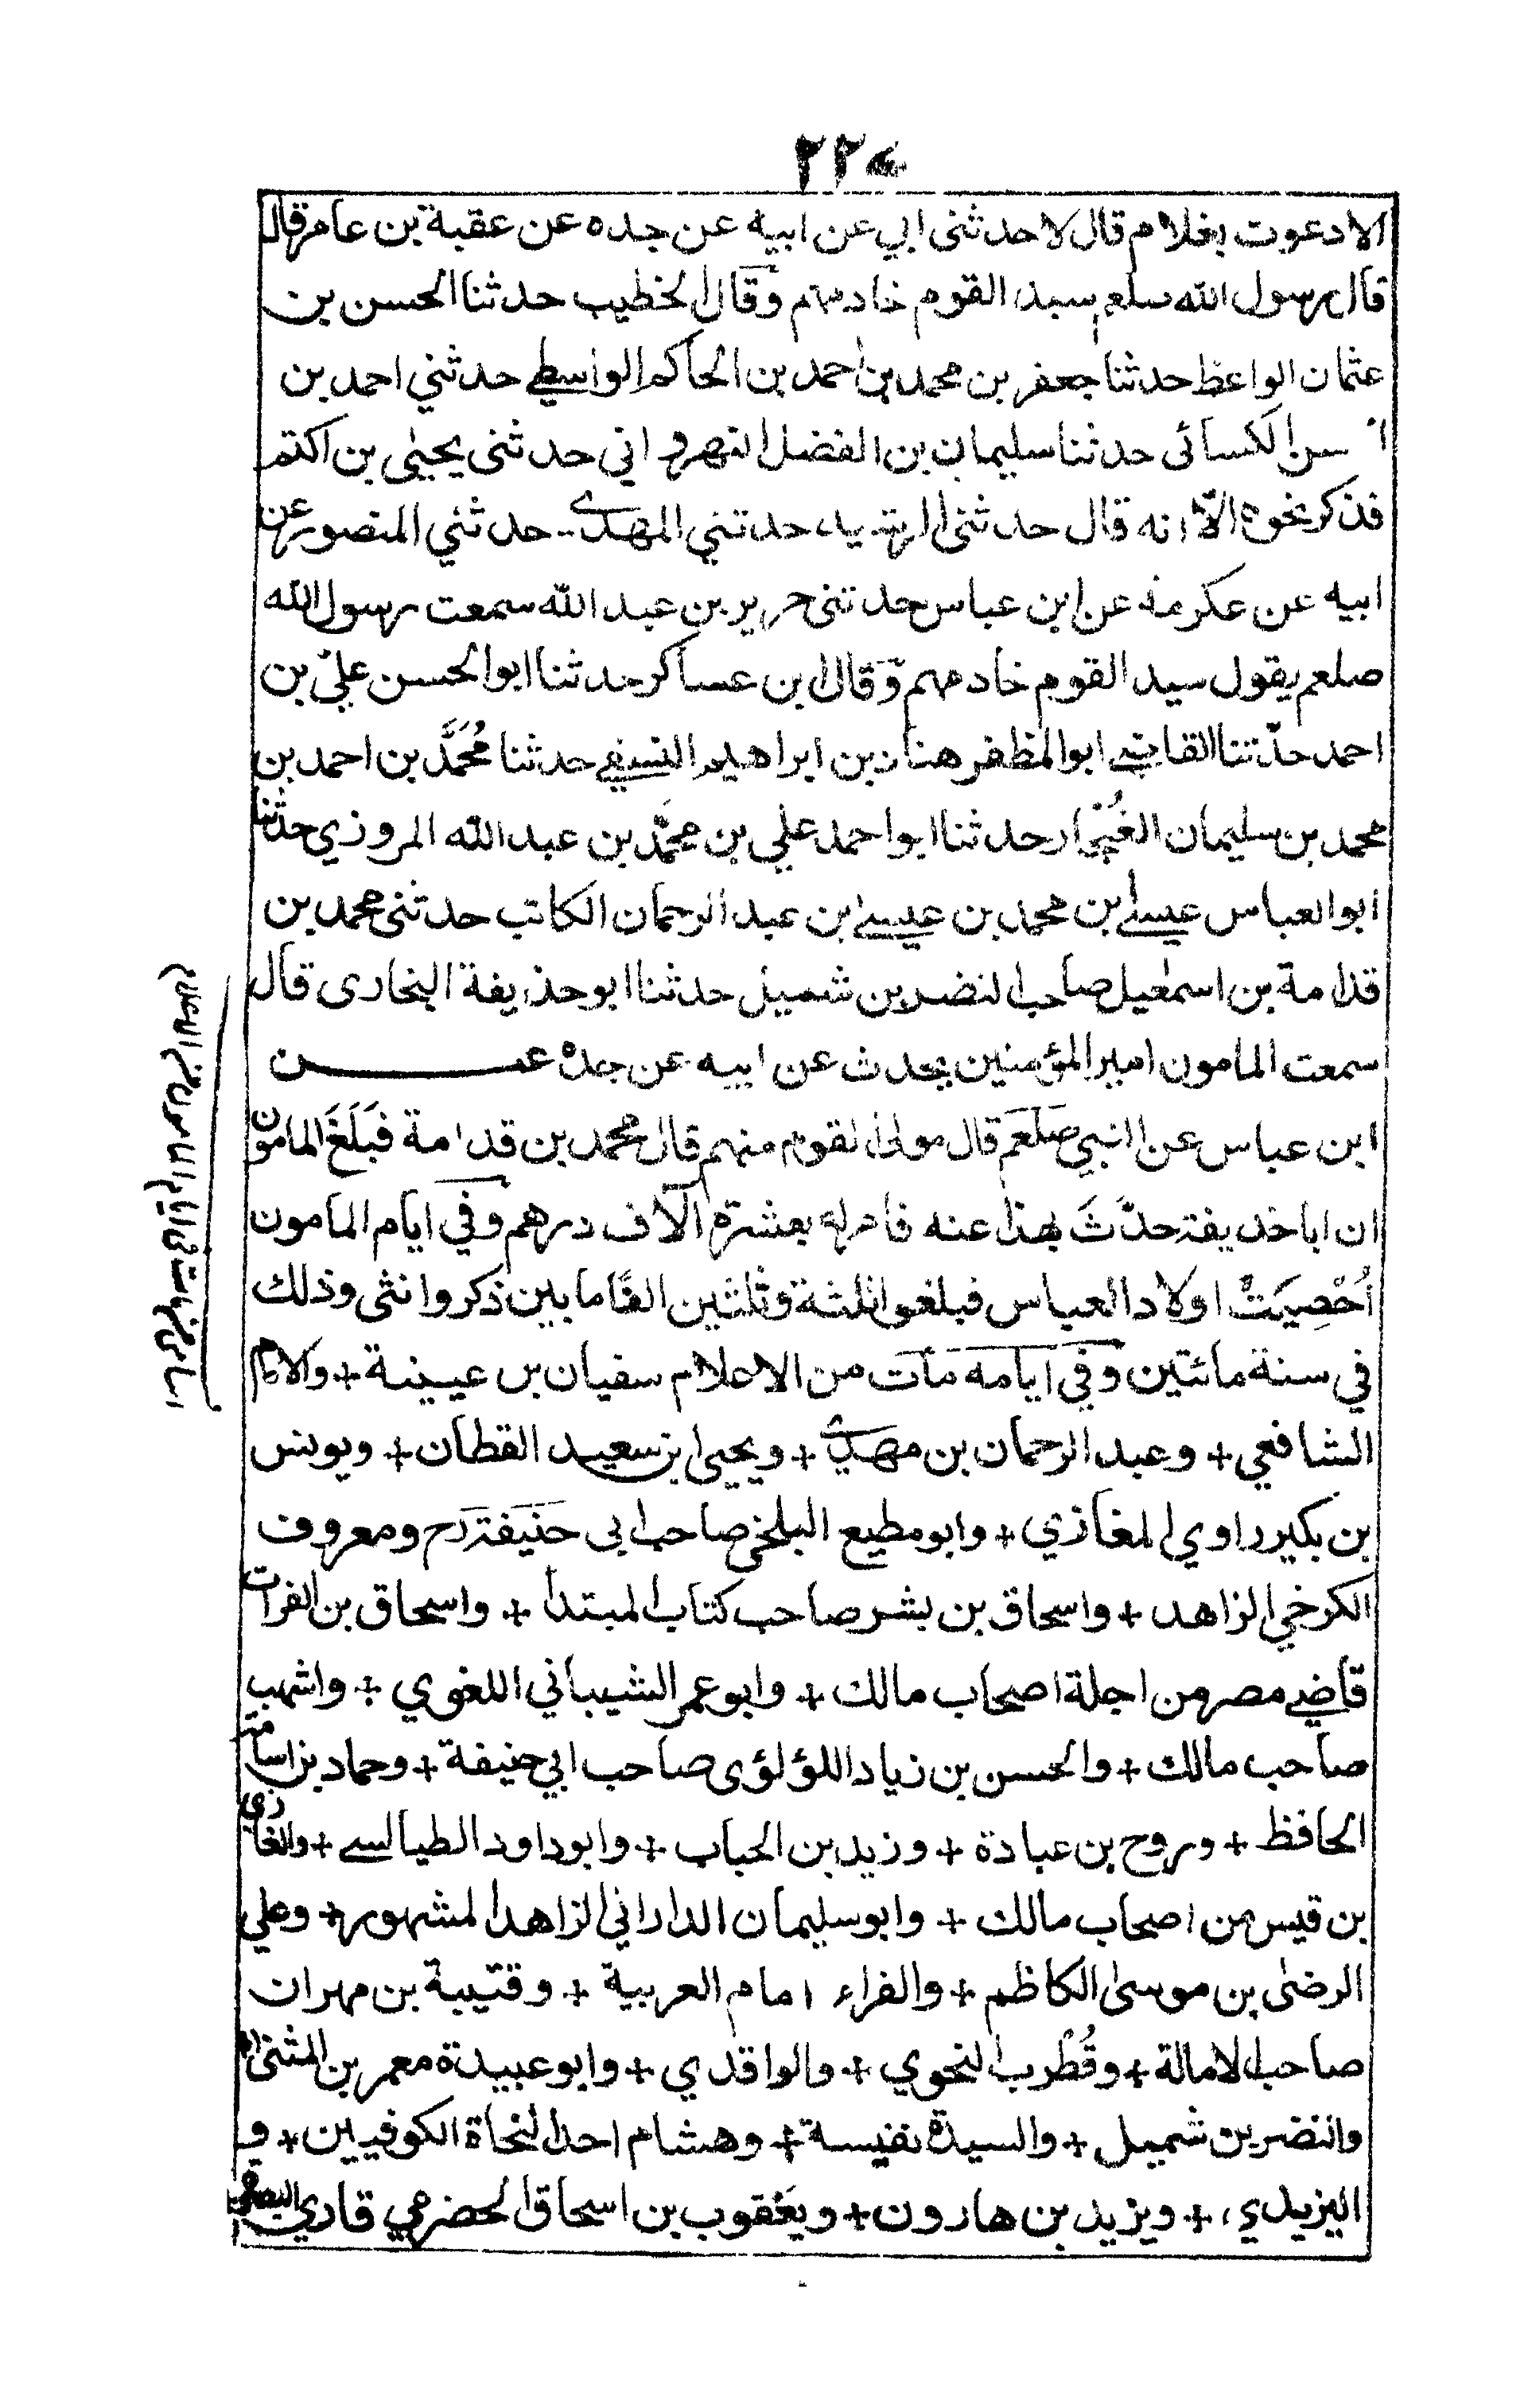 الا دعوت بغلام قال لا حدثنى ابي عن ابيه عن جده عن عقبة بن عامر قال
قال رسول الله صلعم سيد القوم خادمهم وقال الخطيب حدثنا الحسن بن
عثمان الواعظ حدثنا جعفر بن محمد بن احمد بن الحاكم الواسطي حدثني احمد بن
الحسن الكسائى حدثنا سليمان بن الفضل النهرواني حدثنى يحيى بن اكثم
فذكر نحوه الّا انه قال حدثنى الرشيد حدثني المهدي حدثني المنصور عن
ابيه عن عكرمة عن ابن عباس حدثنى جرير بن عبد الله سمعت رسول الله
صلعم يقول سيد القوم خادمهم وقال ابن عساكر حدثنا ابو الحسن علي بن
احمد حدّثنا القاضي ابو المظفر هناد بن ابراهيم النسفي حدثنا مُحَمَّد بن احمد بن
محمد بن سليمان الغُنجار حدثنا ابو احمد علي بن محمّد بن عبد الله المروزي حدثنا
ابو العباس عيسى بن محمد بن عيسى بن عبد الرحمان الكاتب حدثنى محمد بن
قدامة بن اسمعيل صاحب النضر بن شميل حدثنا ابو حذيفة البخارى قال
سمعت المامون امير المؤمنين يحدث عن ابيه عن جده عن
ابن عباس عن النبي صلعم قال مولى القوم منهم قال محمد بن قدامة فَبَلَغَ المامون
ان ابا حذيفة حدَّثَ بهذا عنه فامر له بعشرة آلاف درهم وفي ايام المامون
أُحْصِيَتْ اولاد العباس فبلغوا ثلثة وثلثين الفًا ما بين ذكر وانثى وذلك
في سنة مائتين وفي ايامه مات من الاعلام سفيان بن عيينة + والامام
الشافعي + وعبد الرحمان بن مهدي + ويحيى بن سعيد القطان + ويونس
بن بكير راوي المغازي + وابو مطيع البلخي صاحب ابى حنيفة رح ومعروف
الكرخي الزاهد + واسحاق بن بشر صاحب كتاب المبتدا + واسحاق بن الفرات
قاضي مصر من اجلة اصحاب مالك + وابو عمر الشيباني اللغوي + واشهب
صاحب مالك + والحسن بن زياد اللؤلؤى صاحب ابي حنيفة + وحماد بن اسامة
الحافظ + وروح بن عبادة + وزيد بن الحباب + وابو داود الطيالسي + والغازي
بن قيس من اصحاب مالك + وابو سليمان الداراني الزاهد المشهور + وعلي
الرضى بن موسى الكاظم + والفراء امام العربية + وقتيبة بن مهران
صاحب الامالة + وقُطْرب النحوي + والواقدي + وابو عبيدة معمر بن المثنى
والنضر بن شميل + والسيدة نفيسة + وهشام احد النحاة الكوفيين + و
اليزيدي + ويزيد بن هارون + ويعقوب بن اسحاق الحضرمي قاري البصرة